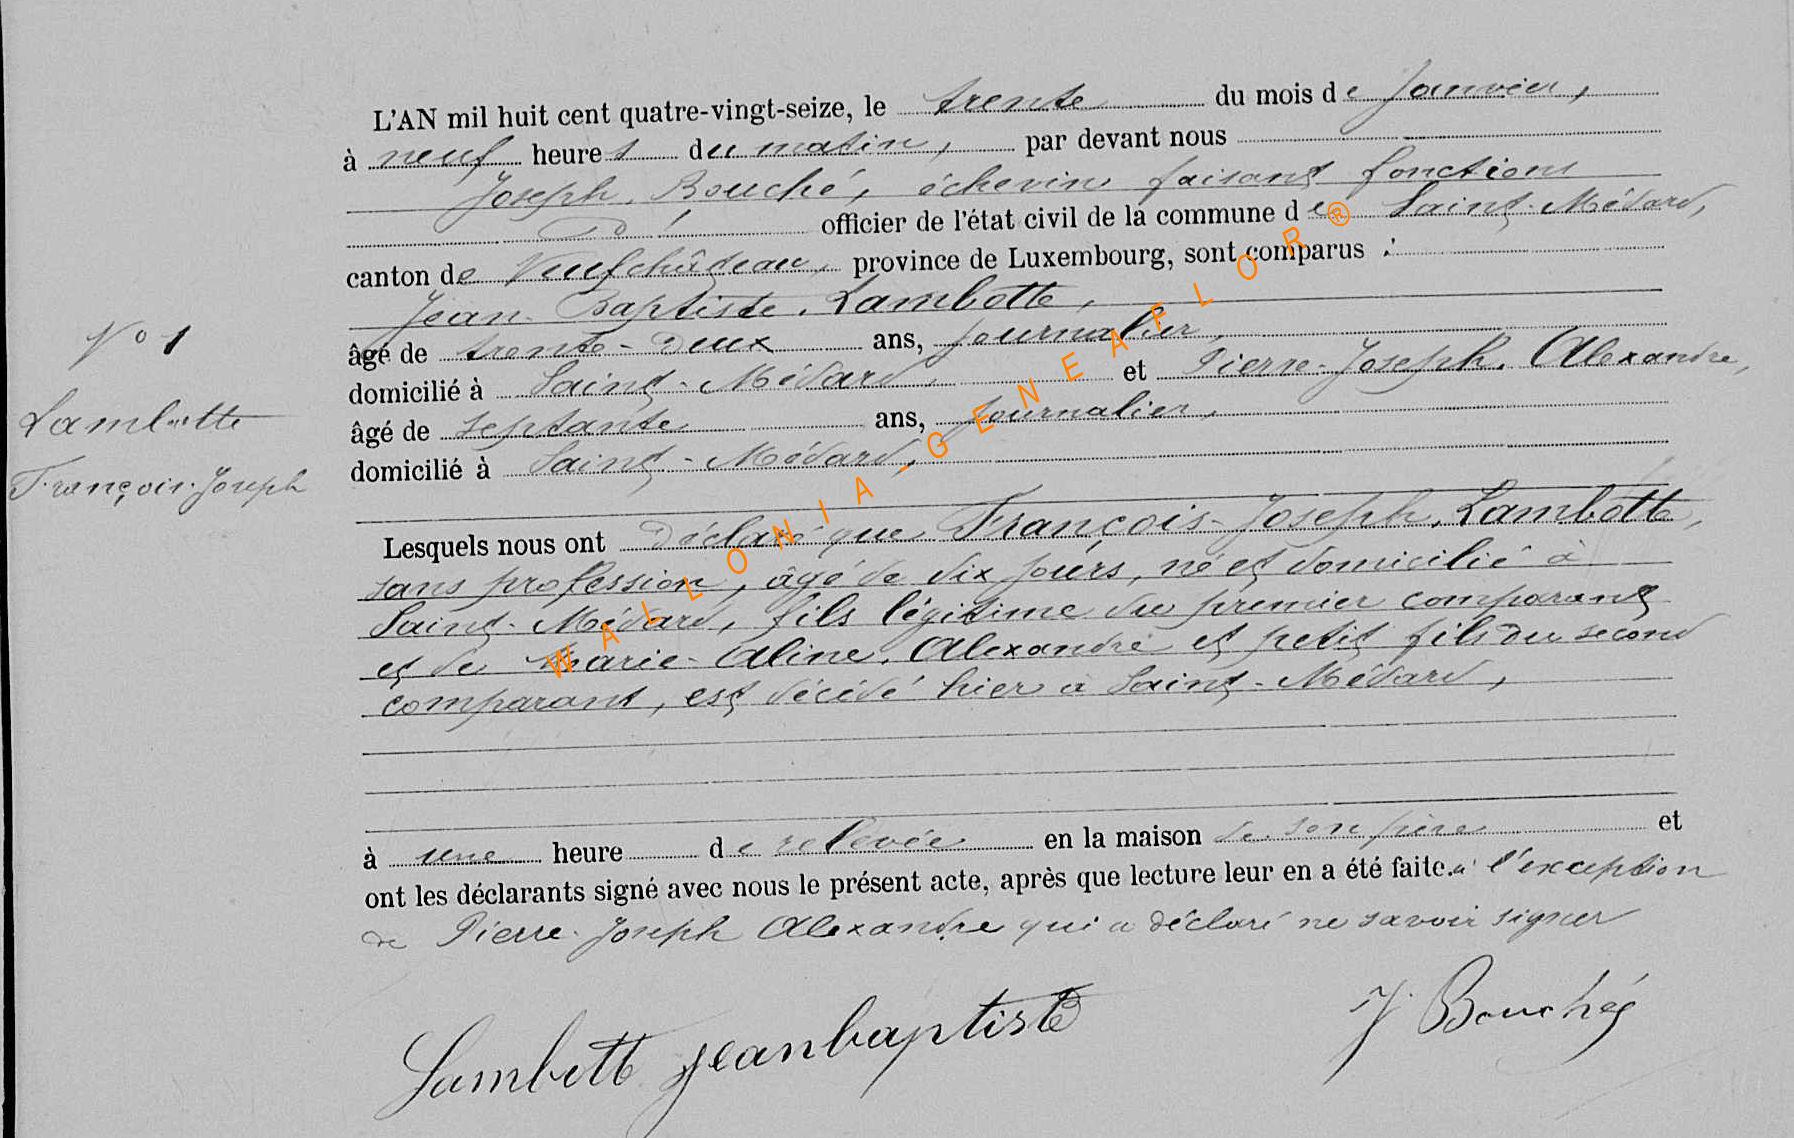 L'AN mil huit cent quatre-vingt-seize, le trente du mois de Janvier,
à neuf heures du matin, par devant nous
Joseph Bouché, échevin faisant fonctions
d' officier de l'état civil de la commune de Saint-Médard,
canton de Neufchâteau, province de Luxembourg, sont comparus :
Jean-Baptiste Lambotte,
âgé de trente-deux ans, journalier,
domicilié à Saint-Médard, et Pierre-Joseph Alexandre,
âgé de septante ans, journalier,
domicilié à Saint-Médard,
N° 1
Lambotte
François-Joseph
Lesquels nous ont déclaré que François-Joseph Lambotte,
sans profession, âgé de dix jours, né et domicilié à
Saint-Médard, fils légitime du premier comparant
et de Marie-Aline Alexandre et petit fils du second
comparant, est décédé hier à Saint-Médard,
à une heure de relevée en la maison de son père et
ont les déclarants signé avec nous le présent acte, après que lecture leur en a été faite. à l'exception
de Pierre-Joseph Alexandre qui a déclaré ne savoir signer
Lambott jeanbaptiste
J Bouché
WALLONIA-GENEAFLOR®